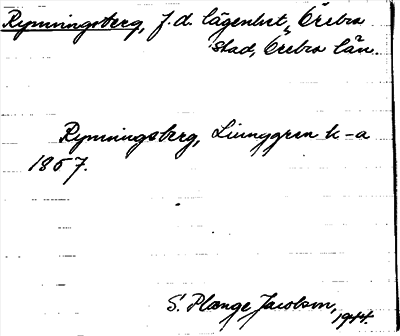 Rynningsberg, f.d. lägenhet, Örebro
stad, Örebro län.
Rynningsberg, Ljunggren k-a
1857.
S. Plange Jacobson,
1944.